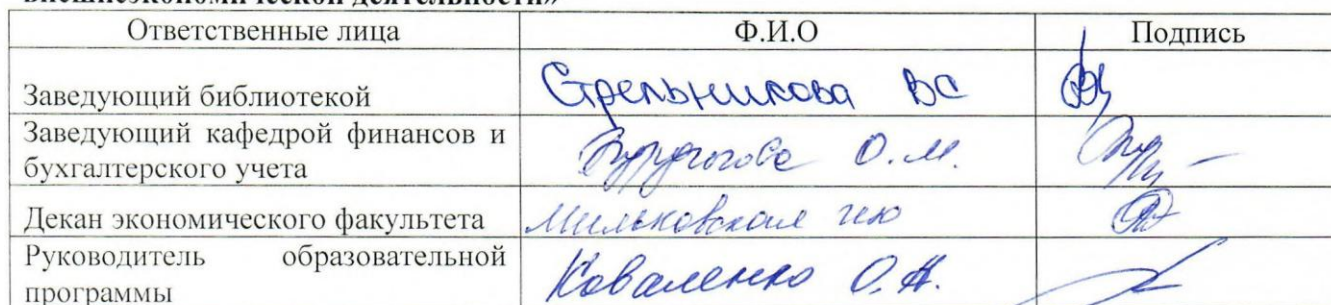 внешнеэкономической деятельности»
Ответственные лица Ф.И.О Подпись
Заведующий библиотекой Стрельникова ВС
Заведующий кафедрой финансов и
бухгалтерского учета О.М.
Декан экономического факультета Мильковская
Руководитель образовательной
программы Коваленко О.Н.